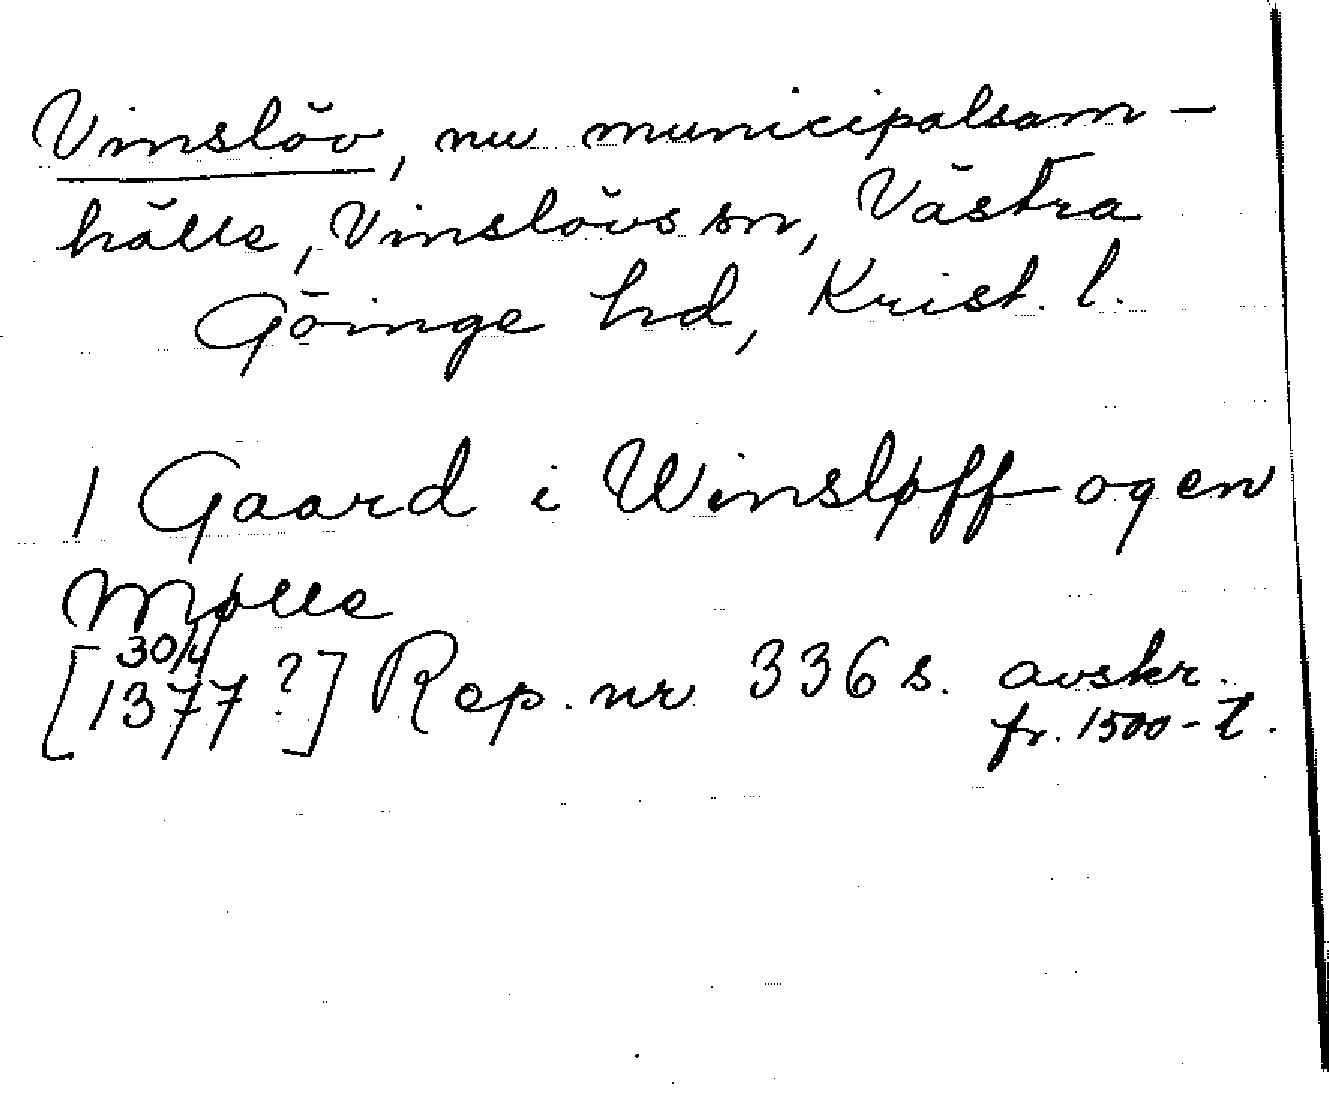 Vinslöv, nu municipalsam-
hälle, Vinslövs sn, Västra
Göinge hd, Krist. l.
1 Gaard i Winsløff og en
Mølle
[30/4 1377?] Rep. nr 336 s. avskr.
fr. 1500-t.